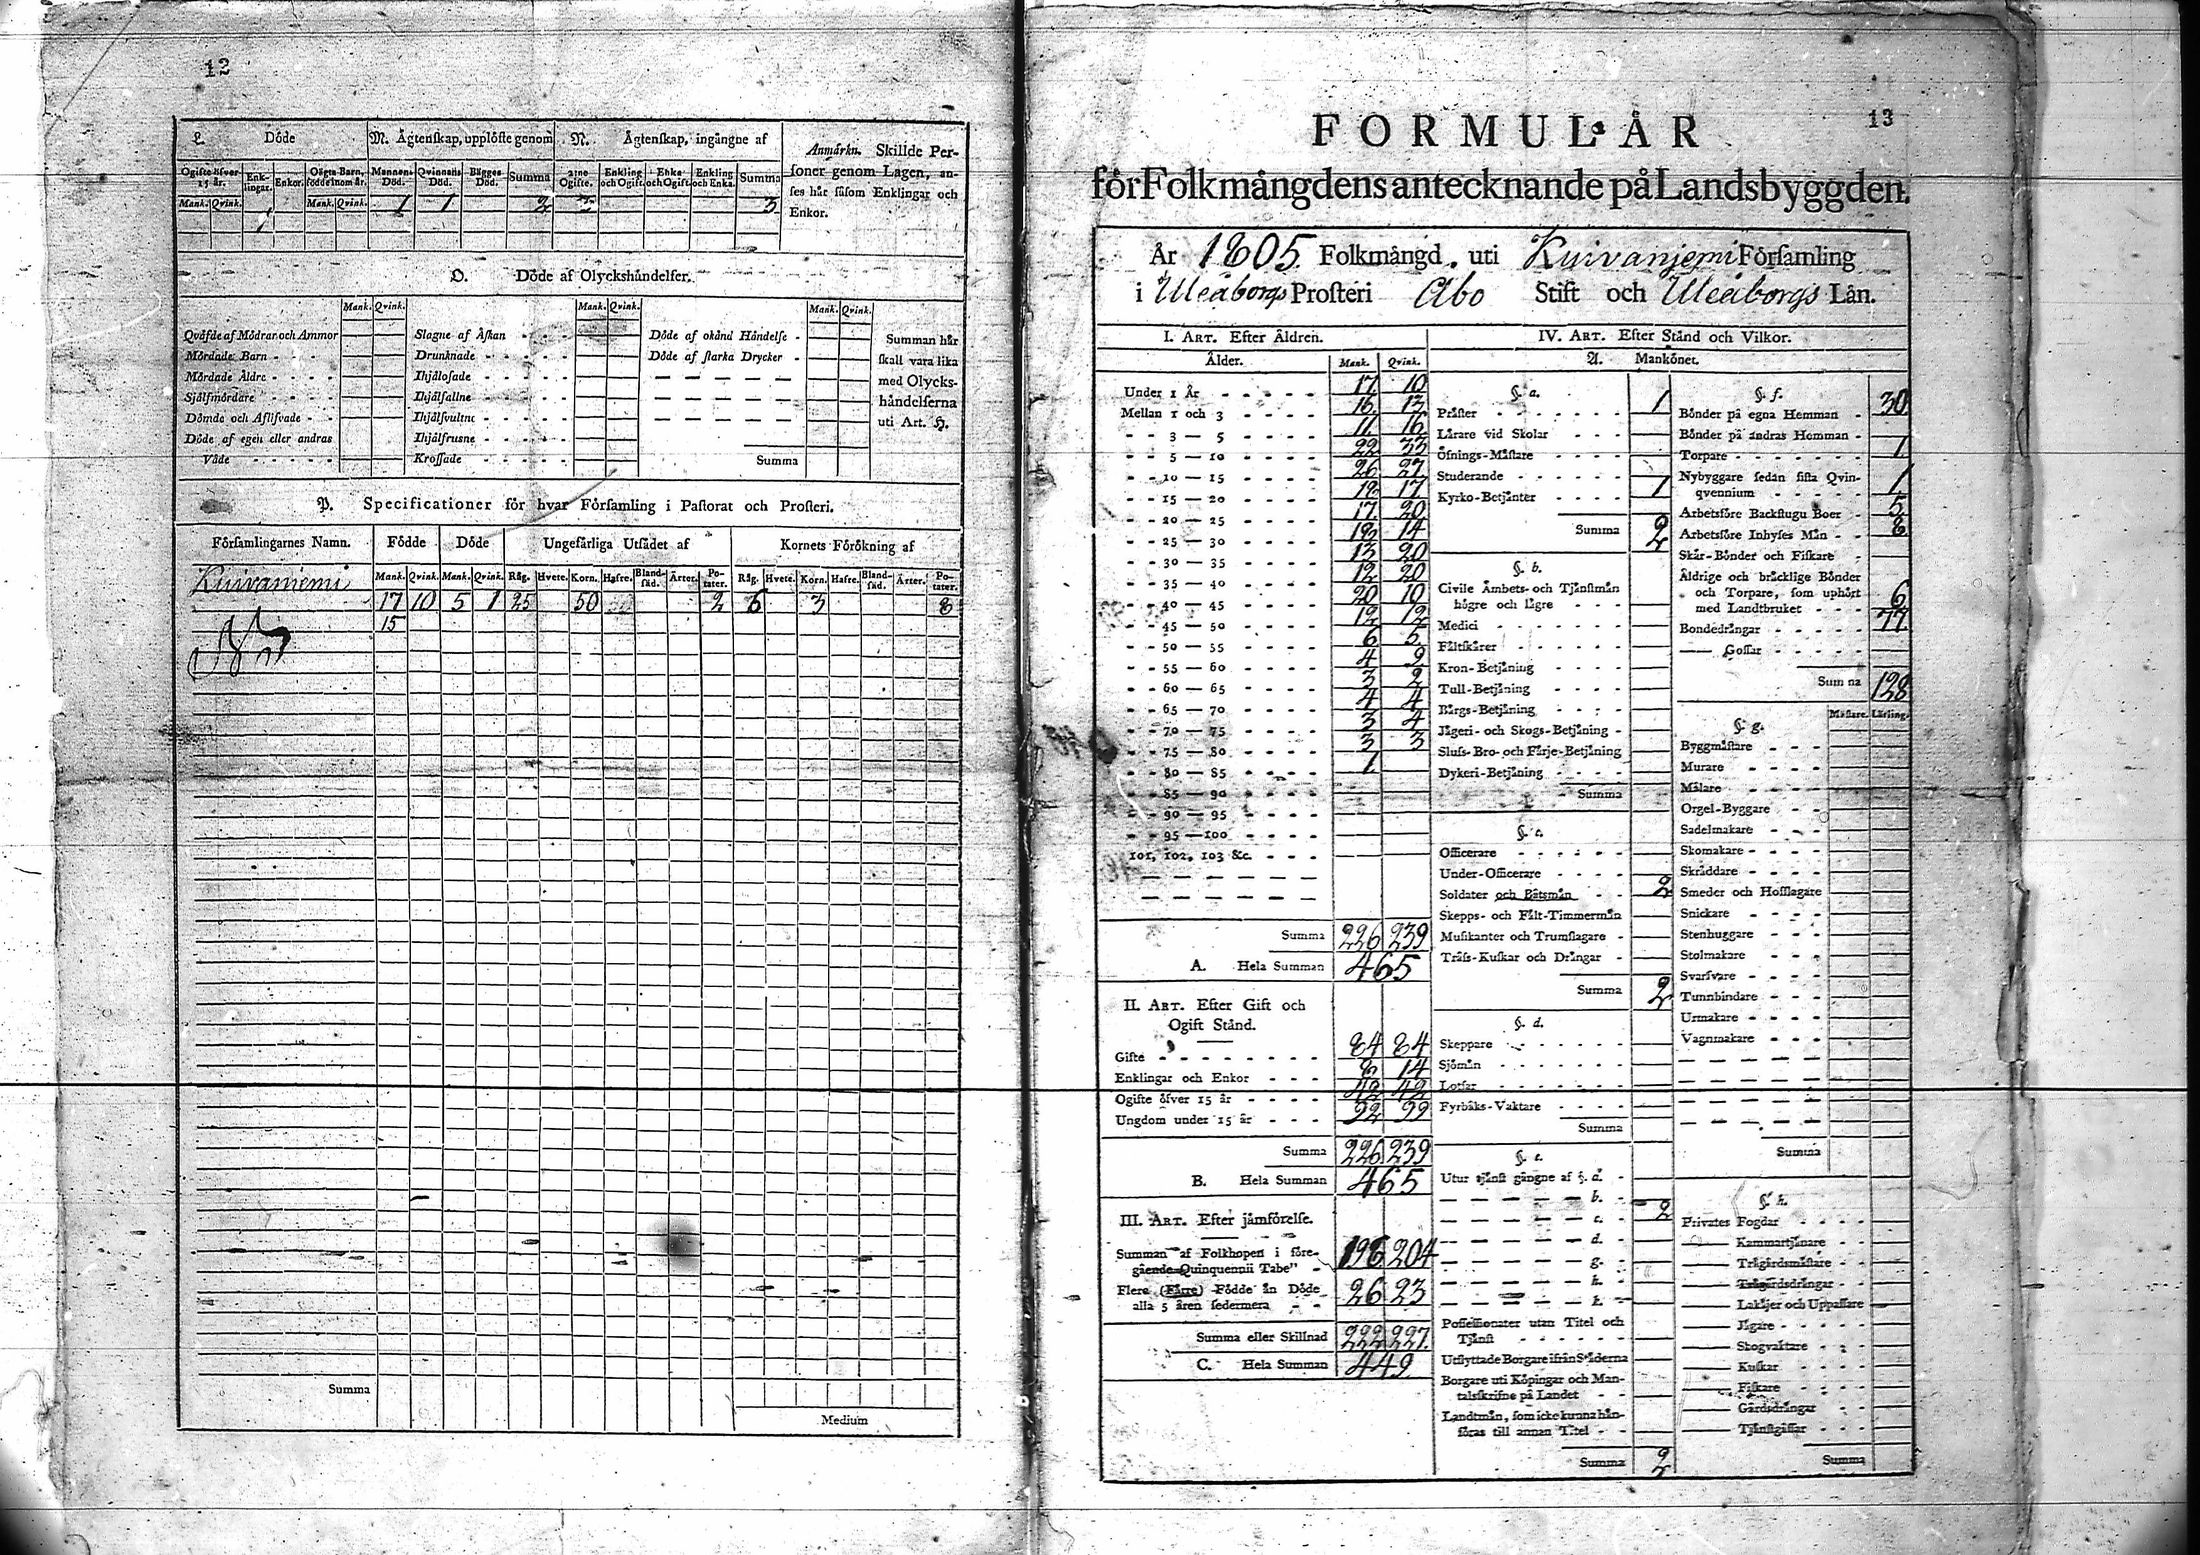 12
L. Döde M. Ägtenskap, upplöste genom N. Ägtenskap, ingångne af Anmärkn. Skillde Per-
soner genom Lagen, an-
ses här såsom Enklingar och
Enkor.
Ogifte öfver 15 år. Enk-lingar. Enkor. Oägta Barn, födde inom år. Mannens Död. Qvinnans Död. Bägges Död. Summa Ogifte. Enkling och Ogift. Enka och Ogift. Enkling och Enka. Summa
Mank. Qvink. Mank. Qvink.
1 1 1 2 3 3
O. Döde af Olyckshändelser.
Mank. Qvink. Mank. Qvink. Mank. Qvink.
Qväfde af Mödrar och Ammor Slagne af Åskan Döde af okänd Händelse Summan här
Mördade Barn Drunknade Döde af starka Drycker skall vara lika
Mördade Äldre Ihjälosade med Olycks-
Sjelfmördare Ihjälfallne händelserna
Dömde och Aflifvade Ihjälsvultne uti Art. H.
Döde af egen eller andras Ihjälfrusne
Våde Krossade Summa
P. Specificationer för hvar Församling i Pastorat och Prosteri.
Församlingarnes Namn. Födde Döde Ungefärliga Utsädet af Kornets Förökning af
Mank. Qvink. Mank. Qvink. Råg. Hvete. Korn. Hafre. Bland-säd. Ärter. Po-tater. Råg. Hvete. Korn. Hafre. Bland-säd. Ärter. Po-tater.
Kuivaniemi
17 10 5 1 25 50 2 6 3 8
15
Summa
Medium
13
FORMULÅR
för Folkmängdens antecknande på Landsbyggden.
År 1805 Folkmängd uti Kuivaniemi Församling
i Uleåborgs Prosteri Åbo Stift och Uleåborgs Län.
I. ART. Efter Äldren.
Ålder. Mank. Qvink.
Under 1 År 17 10
Mellan 1 och 3 16 13
3 — 5 11 16
5 — 10 22 33
10 — 15 26 27
15 — 20 18 17
20 — 25 17 20
25 — 30 18 14
30 — 35 13 20
35 — 40 12 20
40 — 45 20 10
45 — 50 12 12
50 — 55 6 5
55 — 60 4 9
60 — 65 3 2
65 — 70 4 4
70 — 75 3 4
75 — 80 3 3
80 — 85 1
85 — 90
90 — 95
95 — 100
101, 102, 103 &c.
Summa 226 239
A. Hela Summan 465
II. ART. Efter Gift och
Ogift Stånd.
Gifte 84 84
Enklingar och Enkor 8 14
Ogifte öfver 15 år 42 42
Ungdom under 15 år 92 99
Summa 226 239
B. Hela Summan 465
III. ART. Efter jämförelse.
Summan af Folkhopen i före-
gående Quinquennii Tabe" 196 204
Flere (Färre) Födde än Döde
alla 5 åren sedermera 26 23
Summa eller Skillnad 222 227
C. Hela Summan 449
IV. ART. Efter Stånd och Vilkor.
A. Mankönet.
§. a.
Präster 1
Lärare vid Skolar
Öfnings-Mästare
Studerande
Kyrko-Betjänter 1
Summa 2
§. b.
Civile Ämbets- och Tjänstmän
högre och lägre
Medici
Fältskärer
Kron-Betjäning
Tull-Betjäning
Bärgs-Betjäning
Jägeri- och Skogs-Betjäning
Sluss-Bro- och Färje-Betjäning
Dykeri-Betjäning
Summa
§. c.
Officerare
Under-Officerare
Soldater och Båtsmän 2
Skepps- och Fält-Timmermän
Musikanter och Trumslagare
Träss-Kuskar och Drängar
Summa 2
§. d.
Skeppare
Sjömän
Lotsar
Fyrbåks-Vaktare
Summa
§. e.
Utur tjänst gångne af §. a.
b.
c. 2
d.
g.
h.
k.
Possessionater utan Titel och
Tjänst
Utflyttade Borgare ifrån Städerna
Borgare uti Köpingar och Man-
talsskrifne på Landet
Landtmän, som icke kunna hän-
föras till annan Titel
Summa 2
§. f.
Bönder på egna Hemman 30
Bönder på andras Hemman
Torpare 1
Nybyggare sedan sista Qvin-
qvennium 1
Arbetsföre Backstugu Boer 5
Arbetsföre Inhyses Män 8
Skär-Bönder och Fiskare
Äldrige och bräcklige Bönder
och Torpare, som uphört
med Landtbruket 6
Bondedrängar 77
Gossar
Summa 128
§. g. Mästare. Lärling.
Byggmästare
Murare
Målare
Orgel-Byggare
Sadelmakare
Skomakare
Skräddare
Smeder och Hofslagare
Snickare
Stenhuggare
Stolmakare
Svarfvare
Tunnbindare
Urmakare
Vagnmakare
Summa
§. h.
Privates Fogdar
Kammartjänare
Trägårdsmästare
Trägårdsdrängar
Lakäjer och Uppassare
Jägare
Skogvaktare
Kuskar
Fiskare
Gårdsdrängar
Tjänstgossar
Summa